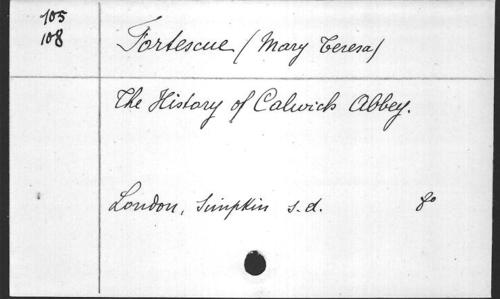 105
108
Fortescue (Mary Teresa)
The History of Calwich Abbey.
London, Simpkin s.d. 8o